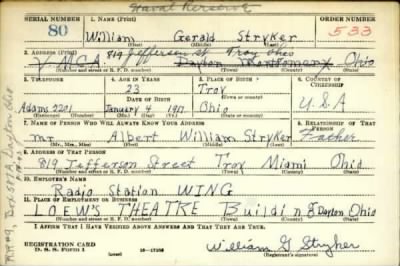 Naval Reserve
SERIAL NUMBER 1. NAME (Print) ORDER NUMBER
80 William Gerald Stryker 533
(First) (Middle) (Last)
2. ADDRESS (Print) 819 Jefferson St Troy Ohio
Y.M.C.A. Dayton Montgomery Ohio
(Number and street or R. F. D. number) (Town) (County) (State)
3. TELEPHONE 4. AGE IN YEARS 5. PLACE OF BIRTH 6. COUNTRY OF CITIZENSHIP
23 Troy
DATE OF BIRTH (Town or county)
Adams 2201 January 1917 Ohio U.S.A
(Exchange) (Number) (Mo.) (Day) (Yr.) (State or country)
7. NAME OF PERSON WHO WILL ALWAYS KNOW YOUR ADDRESS 8. RELATIONSHIP OF THAT PERSON
Mr. Albert William Stryker Father
(Mr., Mrs., Miss) (First) (Middle) (Last)
9. ADDRESS OF THAT PERSON
819 Jefferson Street Troy Miami Ohio
(Number and street or R. F. D. number) (Town) (County) (State)
10. EMPLOYER'S NAME
Radio Station WING
11. PLACE OF EMPLOYMENT OR BUSINESS
LOEW'S THEATRE Building Dayton Ohio
(Number and street or R. F. D. number) (Town) (County) (State)
I AFFIRM THAT I HAVE VERIFIED ABOVE ANSWERS AND THAT THEY ARE TRUE.
REGISTRATION CARD
D. S. S. Form 1
William G Stryker
(Registrant's signature)
Box 581A, Dayton Ohio